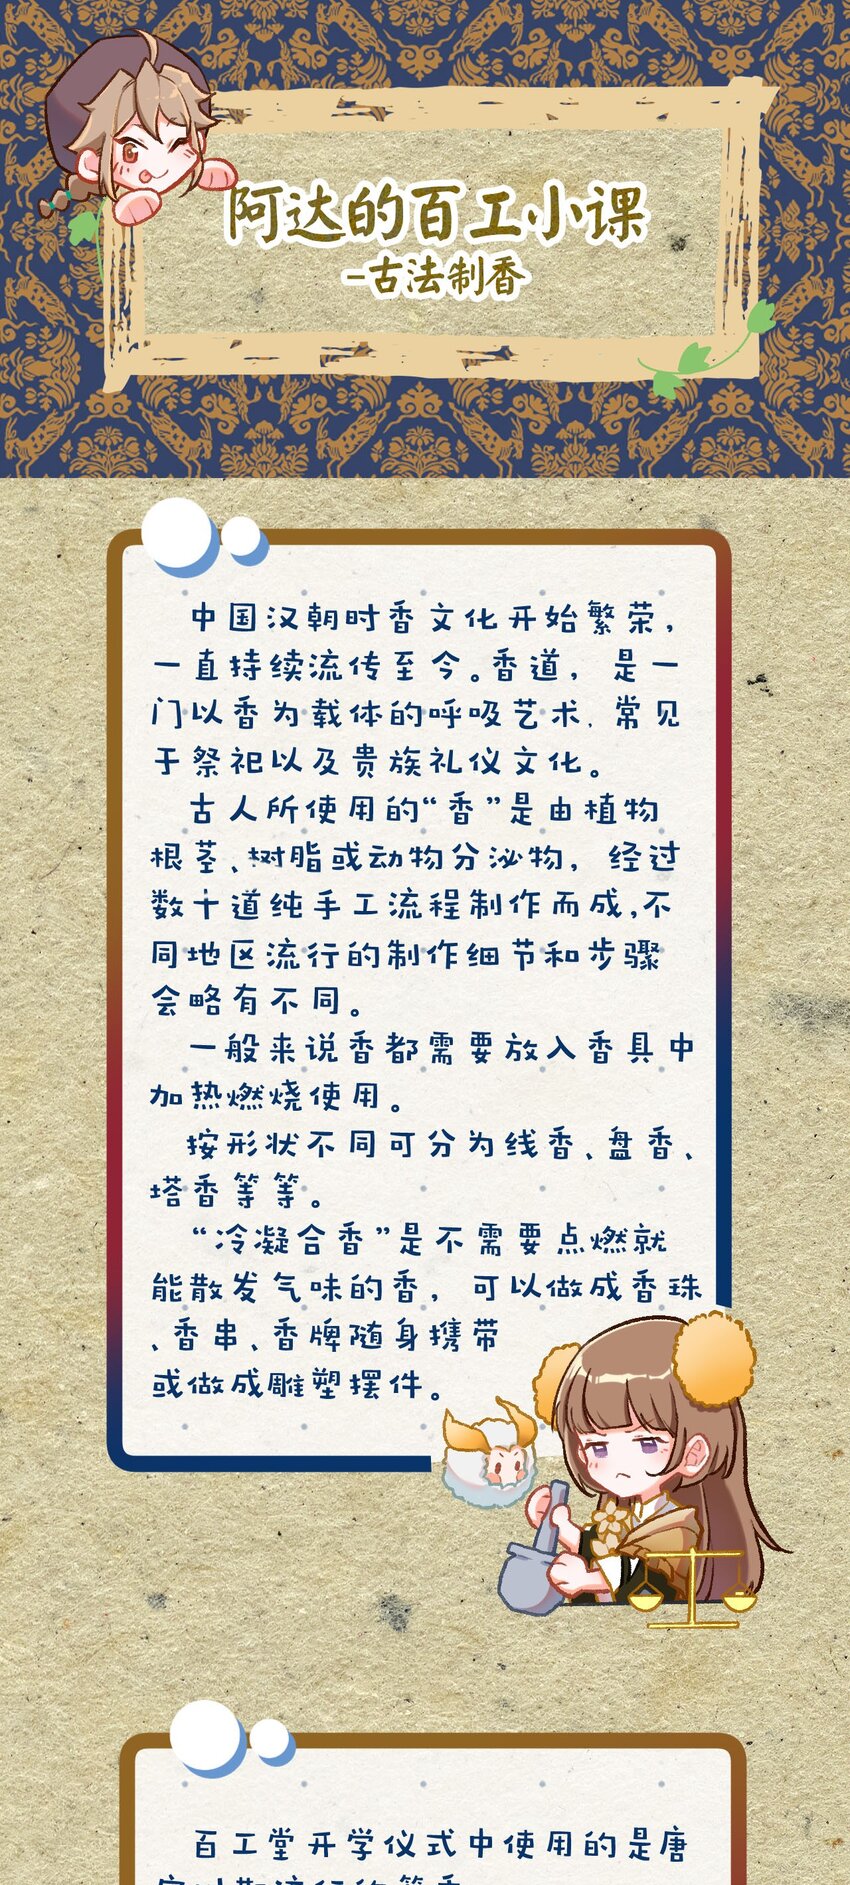 阿达的百工小课
-古法制香
中国汉朝时香文化开始繁荣，
一直持续流传至今。香道，是一
门以香为载体的呼吸艺术，常见
于祭祀以及贵族礼仪文化。
古人所使用的“香”是由植物
根茎、树脂或动物分泌物，经过
数十道纯手工流程制作而成，不
同地区流行的制作细节和步骤
会略有不同。
一般来说香都需要放入香具中
加热燃烧使用。
按形状不同可分为线香、盘香、
塔香等等。
“冷凝合香”是不需要点燃就
能散发气味的香，可以做成香珠
、香串、香牌随身携带
或做成雕塑摆件。
百工堂开学仪式中使用的是唐